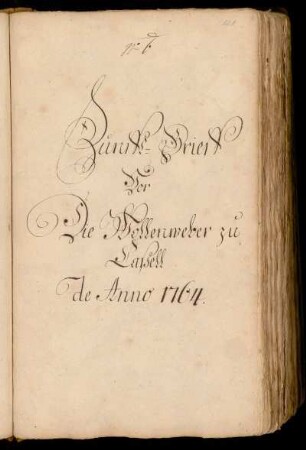 Zunft-Brief
Vor
Die Wollenweber zu
Caßell
de Anno 1764.